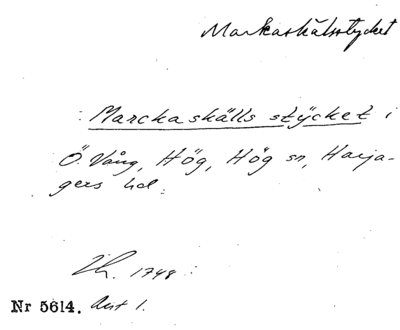 Markaskälsstycket
: Marckaskälls stÿcket i
Ö. Vång, Hög, Hög sn, Harja-
gers hd.
Lh. 1748 :
Nr 5614. Aut 1.